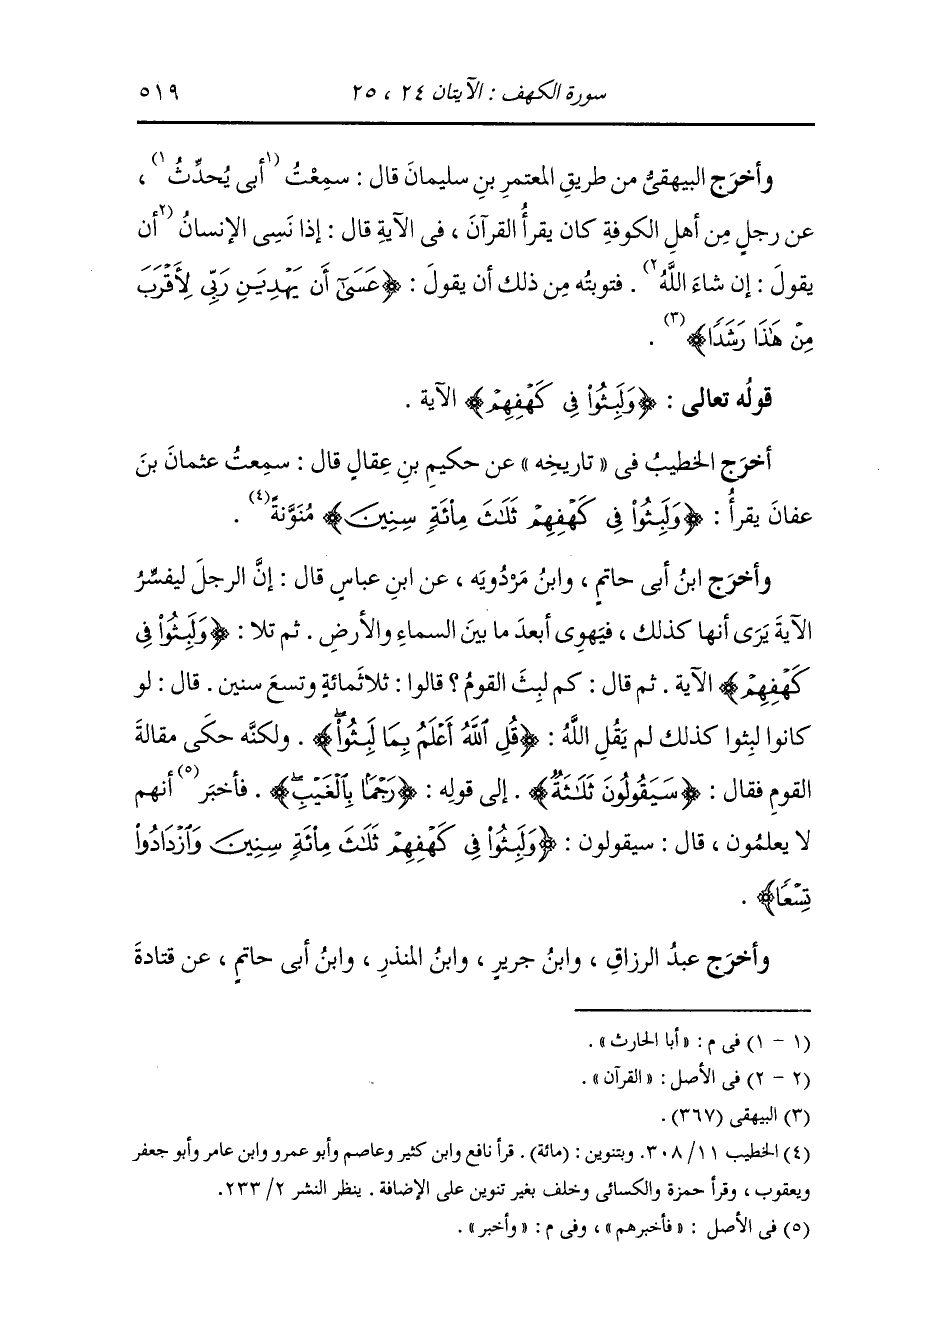 سورة الكهف : الآيتان ٢٤ ، ٢٥ ٥١٩
وأخرَج البيهقىُّ من طريقِ المعتمرِ بنِ سليمانَ قال : سمِعْتُ ⁽¹أبى يُحدِّثُ¹⁾ ،
عن رجلٍ مِن أهلِ الكوفةِ كان يقرأُ القرآنَ ، فى الآيةِ قال : إذا نَسِى الإنسانُ ⁽²أن
يقولَ : إن شاءَ اللَّهُ²⁾ . فتوبتُه مِن ذلك أن يقولَ : ﴿عَسَىٰٓ أَن يَهْدِيَنِ رَبِّى لِأَقْرَبَ
مِنْ هَٰذَا رَشَدًا﴾(٣) .
قولُه تعالى : ﴿وَلَبِثُوا۟ فِى كَهْفِهِمْ﴾ الآية .
أخرَج الخطيبُ فى « تاريخِه » عن حكيمِ بنِ عِقالٍ قال : سمِعتُ عثمانَ بنَ
عفانَ يقرأُ : ﴿وَلَبِثُوا۟ فِى كَهْفِهِمْ ثَلَٰثَ مِا۟ئَةٍ سِنِينَ﴾ مُنَوَّنةً(٤) .
وأخرَج ابنُ أبى حاتمٍ ، وابنُ مَرْدُويَه ، عن ابنِ عباسٍ قال : إنَّ الرجلَ ليفسِّرُ
الآيةَ يَرَى أنها كذلك ، فيَهوِى أبعدَ ما بينَ السماءِ والأرضِ . ثم تلا : ﴿وَلَبِثُوا۟ فِى
كَهْفِهِمْ﴾ الآية . ثم قال : كم لبِثَ القومُ ؟ قالوا : ثلاثَمائةٍ وتسعَ سنين . قال : لو
كانوا لبِثوا كذلك لم يَقُلِ اللَّهُ : ﴿قُلِ ٱللَّهُ أَعْلَمُ بِمَا لَبِثُوا۟ۖ﴾ . ولكنَّه حكَى مقالةَ
القومِ فقال : ﴿سَيَقُولُونَ ثَلَٰثَةٌ﴾ . إلى قولِه : ﴿رَجْمًۢا بِٱلْغَيْبِۖ﴾ . فأخبَر(٥) أنهم
لا يعلمُون ، قال : سيقولون : ﴿وَلَبِثُوا۟ فِى كَهْفِهِمْ ثَلَٰثَ مِا۟ئَةٍ سِنِينَ وَٱزْدَادُوا۟
تِسْعًا﴾ .
وأخرَج عبدُ الرزاقِ ، وابنُ جريرٍ ، وابنُ المنذرِ ، وابنُ أبى حاتمٍ ، عن قتادةَ
(١ - ١) فى م : « أبا الحارث » .
(٢ - ٢) فى الأصل : « القرآن » .
(٣) البيهقى (٣٦٧) .
(٤) الخطيب ١١/ ٣٠٨. وبتنوين : (مائة) . قرأ نافع وابن كثير وعاصم وأبو عمرو وابن عامر وأبو جعفر
ويعقوب ، وقرأ حمزة والكسائى وخلف بغير تنوين على الإضافة . ينظر النشر ٢/ ٢٣٣.
(٥) فى الأصل : « فأخبرهم » ، وفى م : « وأخبر » .